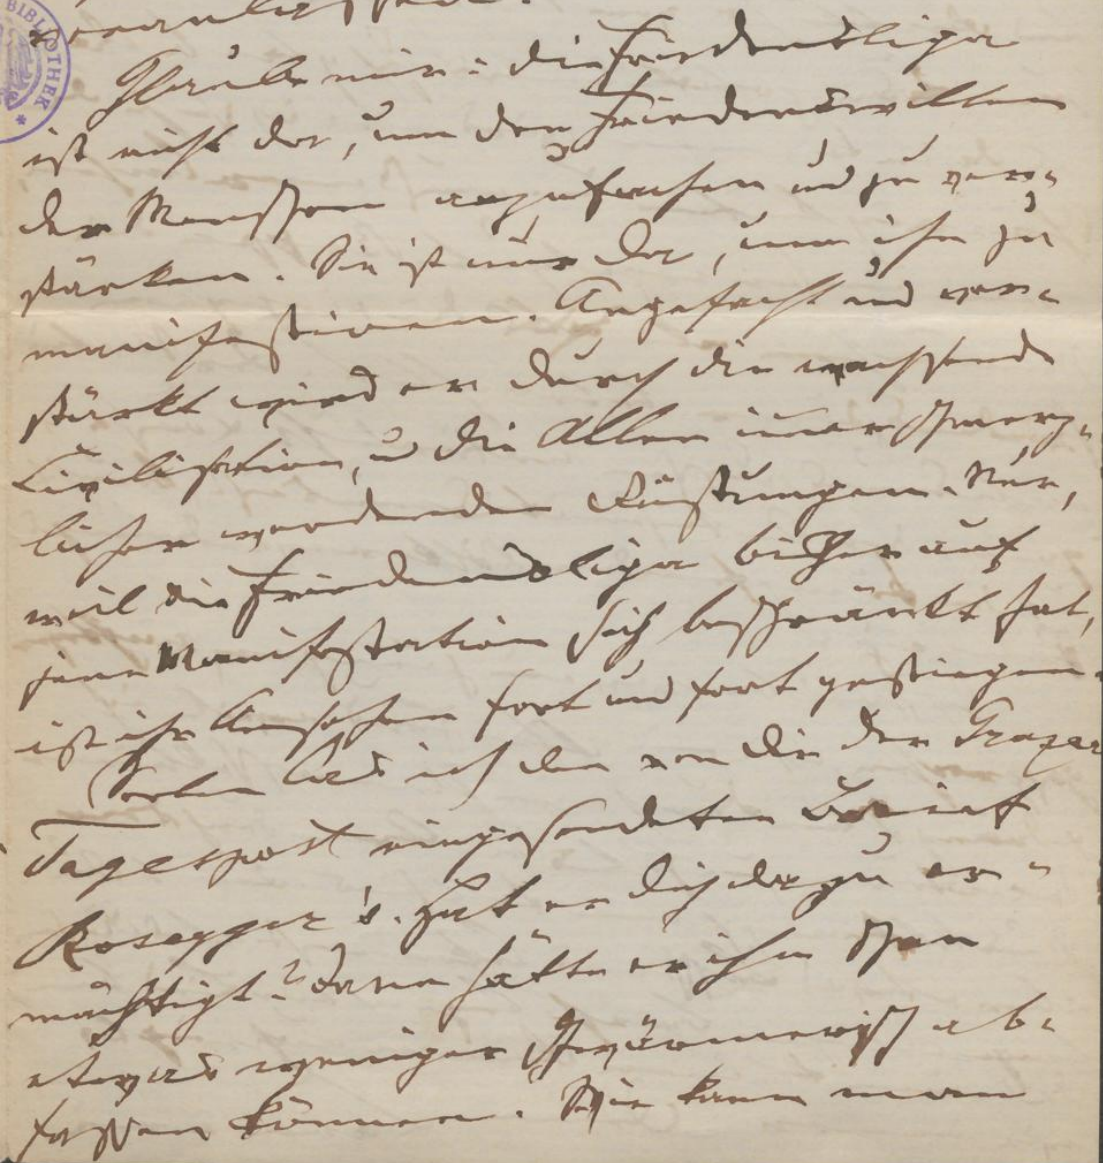 BIBLIOTHEK
Glaube mir: die Friedensliga
ist nicht da, um den Friedenswillen
der Menschen anzufachen und zu ver-
stärken. Sie ist nur da, um ihn zu
manifestiren. Angefacht und ver-
stärkt wird er durch die wachsende
Civilisation, u die Allen immer schmerz-
licher werdenden Rüstungen. Nur,
weil die Friedensliga bisher auf
jene Manifestation sich beschränkt hat,
ist ihr Ansehen fort und fort gestiegen.
Soeben las ich den von dir der Grazer
Tagespost eingesendeten Brief
Rosegger's. Hat er dich dazu er-
mächtigt? Dann hätte er ihn schon
etwas weniger schwärmerisch ab-
fassen können. Wie kann man